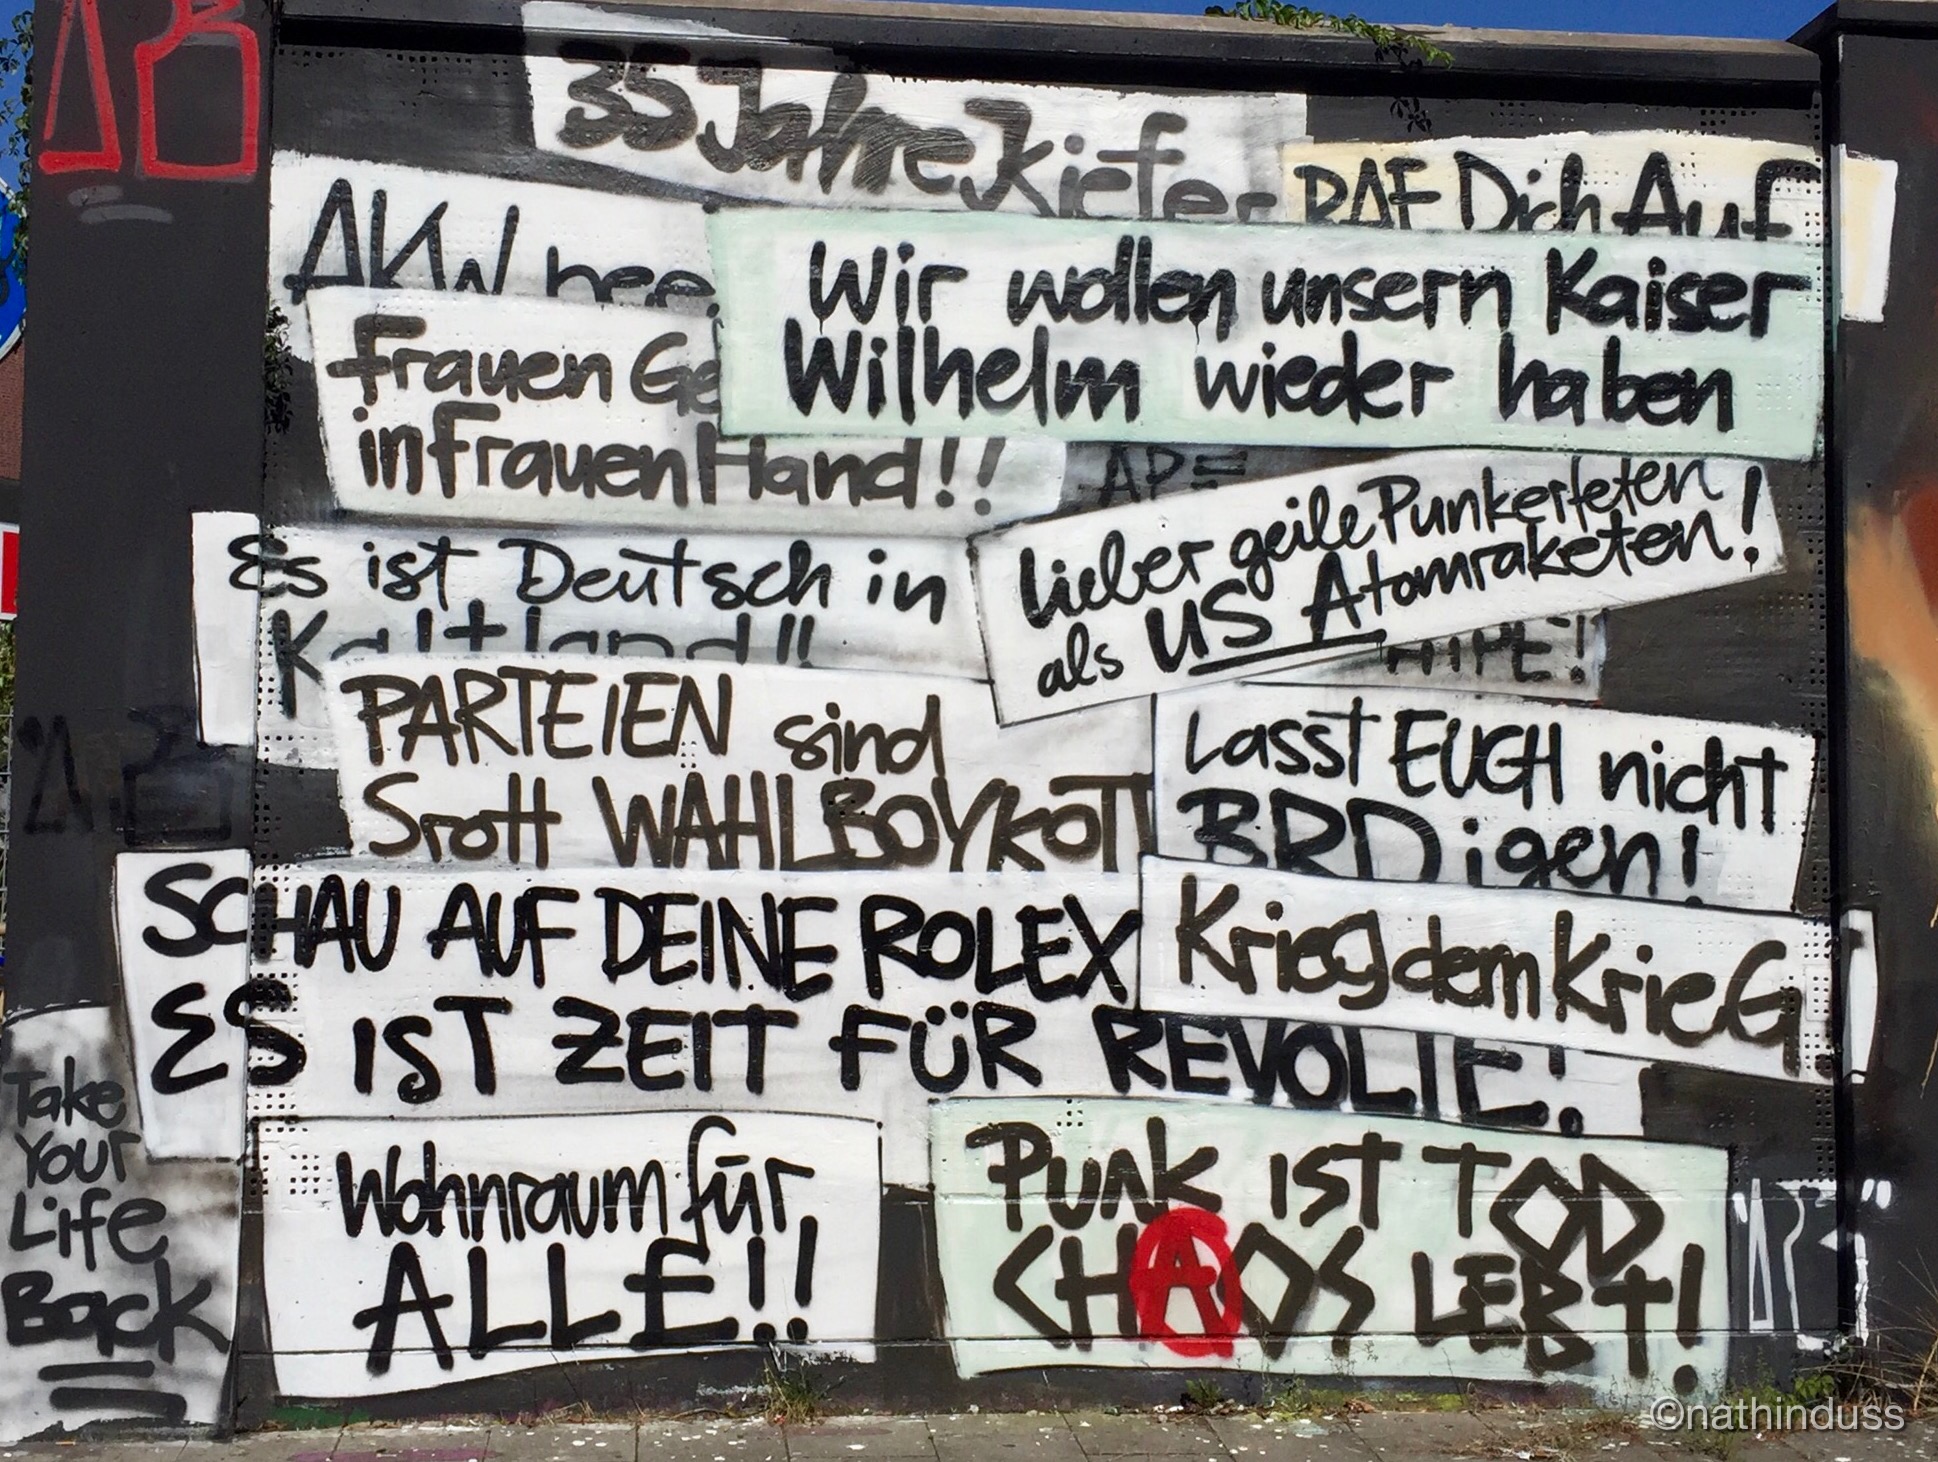 35 Jahre Kiefer
RAF Dich Auf
AKW nee
Wir wollen unsern Kaiser
Wilhelm wieder haben
Frauen Ge
in Frauen Hand!!
Es ist Deutsch in
Kaltland!!
Lieber geile Punkerfeten
als US Atomraketen!
PARTEIEN sind
Srott WAHLBOYKOTT
Lasst EUCH nicht
BRDigen!
SCHAU AUF DEINE ROLEX
ES IST ZEIT FÜR REVOLTE!
Krieg dem Krieg
Take
Your
Life
Back
Wohnraum für
ALLE!!
PUNK IST TOD
CHAOS LEBT!
©nathinduss